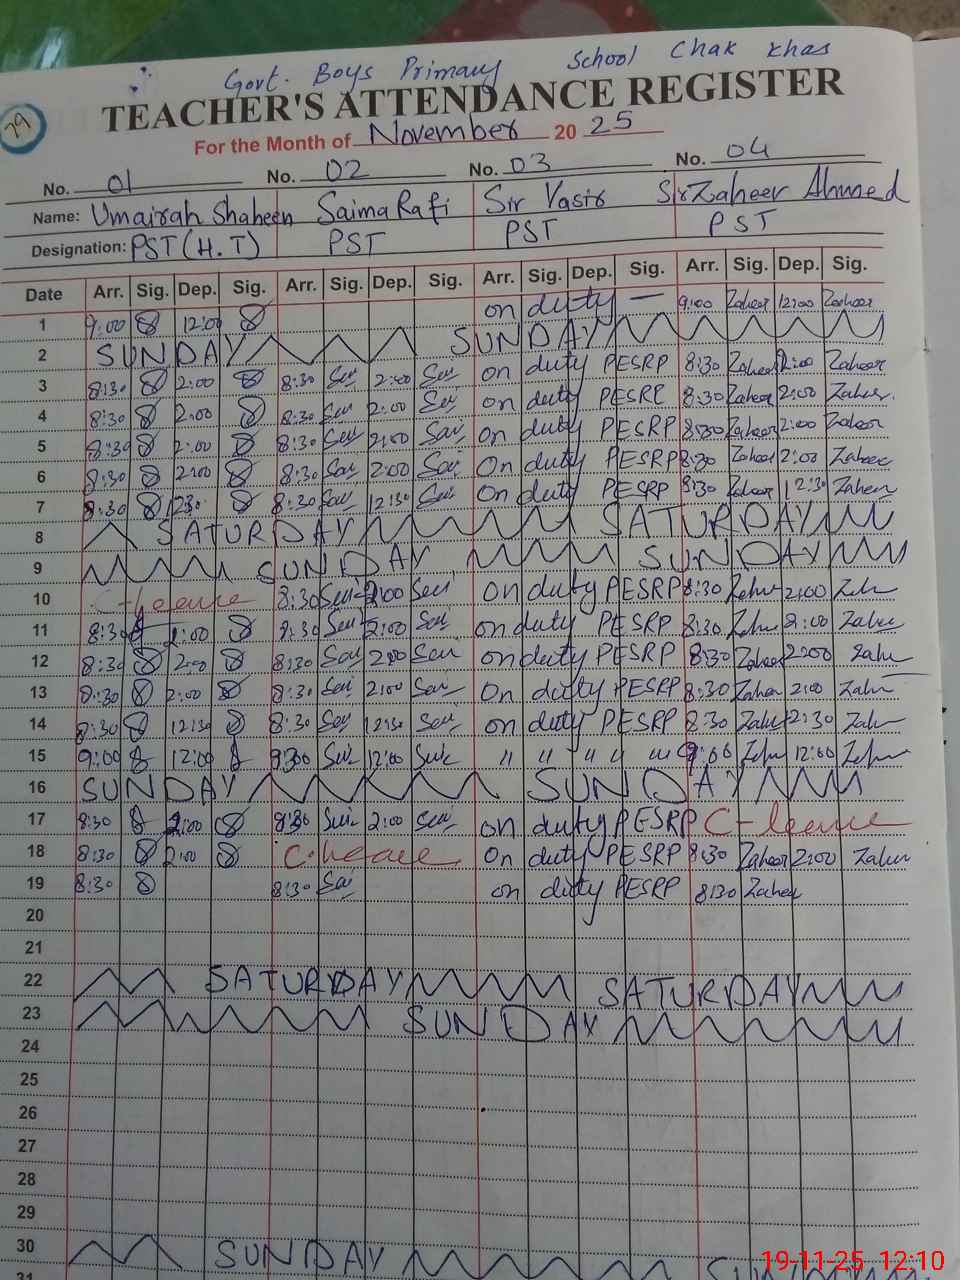 Govt. Boys Primary School Chak Khas
29
TEACHER'S ATTENDANCE REGISTER
For the Month of November 20 25
No. 01 No. 02 No. 03 No. 04
Name: Umairah Shaheen Saima Rafi Sir Yasir Sir Zaheer Ahmed
Designation: PST (H.T) PST PST PST
Date Arr. Sig. Dep. Sig. Arr. Sig. Dep. Sig. Arr. Sig. Dep. Sig. Arr. Sig. Dep. Sig.
1 9:00 12:00 on duty — 9:00 Zaheer 12:00 Zaheer
2 SUNDAY SUNDAY
3 8:30 2:00 8:30 2:00 on duty PESRP 8:30 Zaheer 2:00 Zaheer
4 8:30 2:00 8:30 2:00 on duty PESRP 8:30 Zaheer 2:00 Zaheer
5 8:30 2:00 8:30 2:00 on duty PESRP 8:30 Zaheer 2:00 Zaheer
6 8:30 2:00 8:30 2:00 on duty PESRP 8:30 Zaheer 2:00 Zaheer
7 8:30 1230 8:30 12:30 on duty PESRP 8:30 Zaheer 12:30 Zaheer
8 SATURDAY SATURDAY
9 SUNDAY SUNDAY
10 C-leave 8:30 2:00 on duty PESRP 8:30 2:00
11 8:30 2:00 8:30 2:00 on duty PESRP 8:30 2:00
12 8:30 2:00 8:30 2:00 on duty PESRP 8:30 Zaheer 2:00
13 8:30 2:00 8:30 2:00 on duty PESRP 8:30 2:00
14 8:30 12:30 8:30 12:30 on duty PESRP 8:30 12:30
15 9:00 12:00 9:00 12:00 " " " " " 9:00 12:00
16 SUNDAY SUNDAY
17 8:30 2:00 8:30 2:00 on duty PESRP C-leave
18 8:30 2:00 C-leave on duty PESRP 8:30 Zaheer 2:00
19 8:30 8:30 on duty PESRP 8:30 Zaheer
20
21
22 SATURDAY SATURDAY
23 SUNDAY
24
25
26
27
28
29
30 SUNDAY SUNDAY
31
19-11-25 12:10